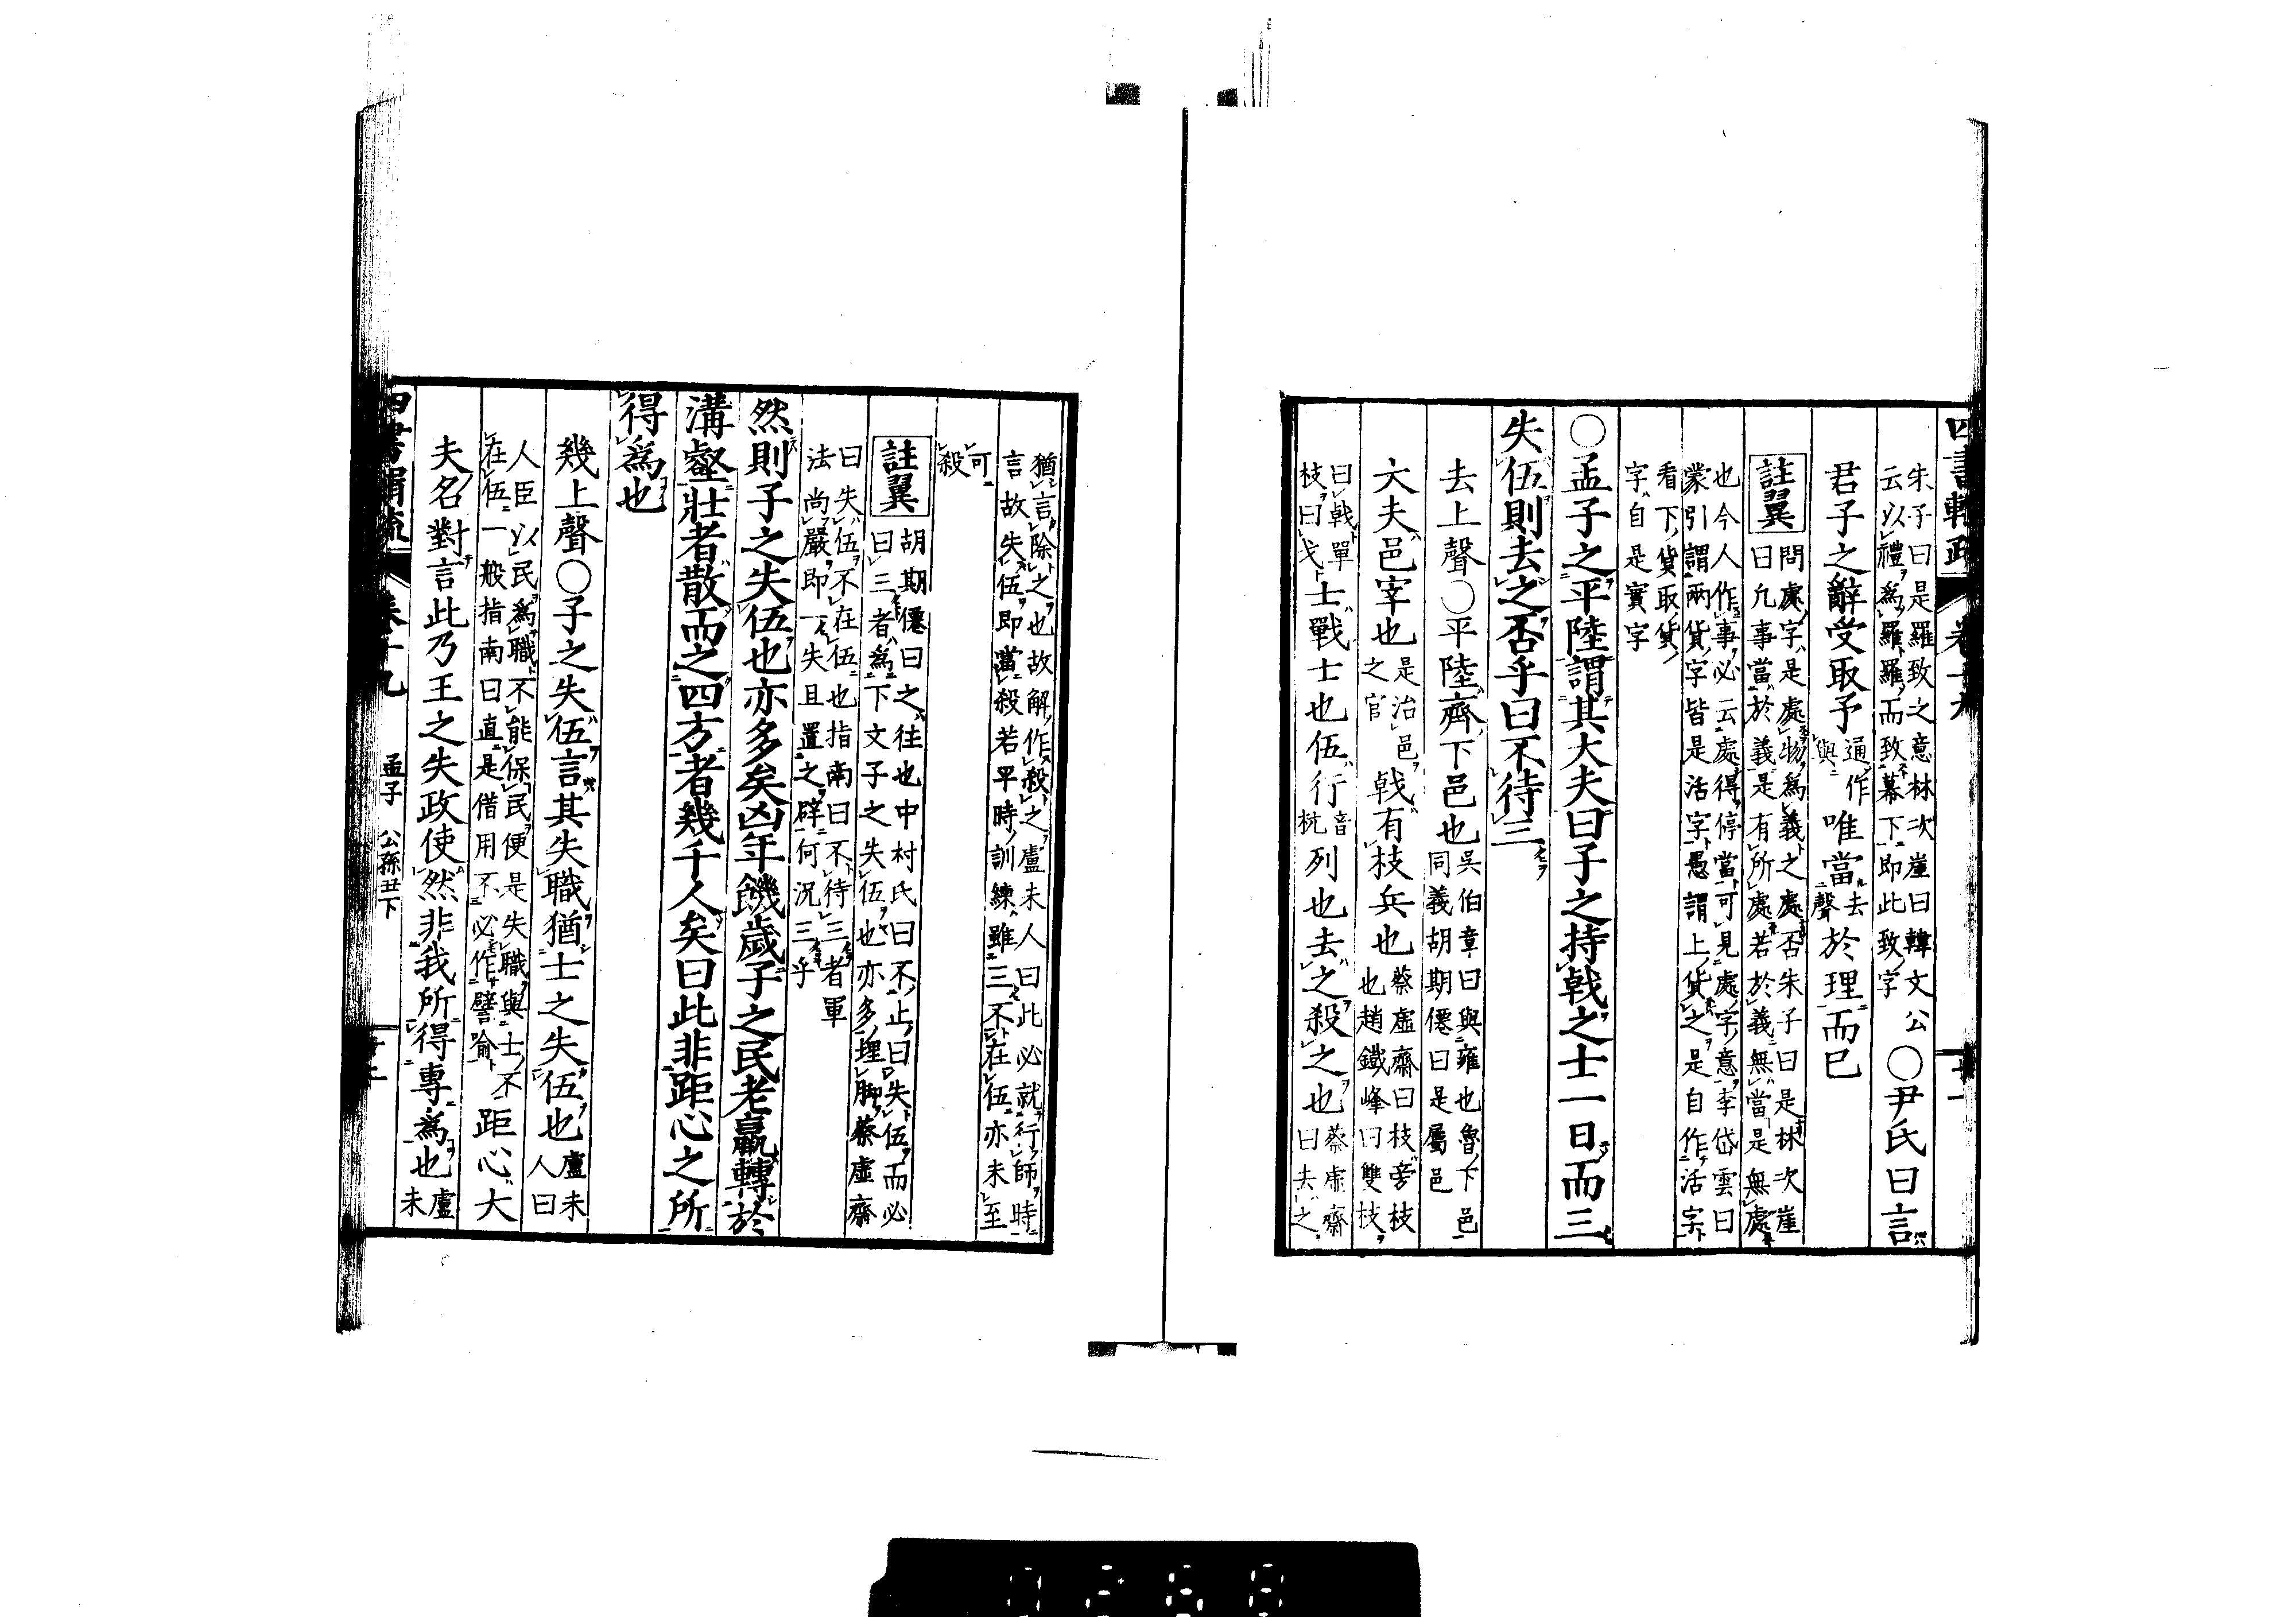 四書輯疏 卷十九
朱子曰是羅致之意林次崖曰韓文公
云以禮爲羅羅而致幕下即此致字
○尹氏曰言
君子之辭受取予
通作
與
唯當
去
聲
於理而已
註翼
問處字是處物爲義之處否朱子曰是林次崖
曰凡事當於義是有所處若於義無當是無處
也今人作事必云處得停當可見處字意李岱雲曰
蒙引謂兩貨字皆是活字愚謂上貨之是自作活字
看下貨取貨
字自是實字
○孟子之平陸謂其大夫曰子之持戟之士一日而三
失伍則去之否乎曰不待三
去上聲○平陸齊下邑也
吳伯章曰與雍也魯下邑
同義胡期僊曰是屬邑
大夫邑宰也
是治邑
之官
戟有枝兵也
蔡虛齋曰枝旁枝
也趙鐵峰曰雙枝
曰戟單
枝曰戈
士戰士也伍行
音
杭
列也去之殺之也
蔡虛齋
曰去之
猶言除之也故解作殺之盧未人曰此必就行師時
言故失伍即當殺若平時訓練雖三不在伍亦未至
可
殺
註翼
胡期僊曰之往也中村氏曰不止曰失伍而必
曰三者爲下文子之失伍也亦多埋脚蔡虛齋
曰失伍不在伍也指南曰不待三者軍
法尚嚴即一失且置之辟何況三乎
然則子之失伍也亦多矣凶年饑歲子之民老羸轉於
溝壑壯者散而之四方者幾千人矣曰此非距心之所
得爲也
幾上聲○子之失伍言其失職猶士之失伍也
盧未
人曰
人臣以民爲職不能保民便是失職與士不
在伍一般指南曰直是借用不必作譬喻
距心大
夫名對言此乃王之失政使然非我所得專爲也
盧
未
四書輯疏 卷十九 孟子 公孫丑下